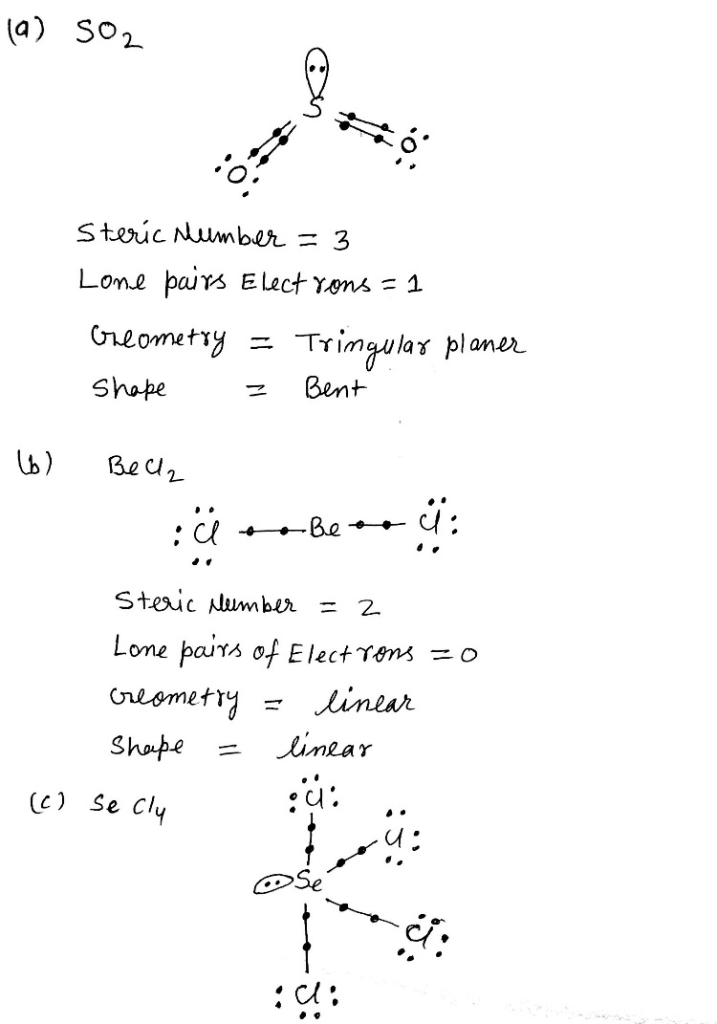 (a) SO2
S
O
O
Steric Number = 3
Lone pairs Electrons = 1
Geometry = Tringular planer
Shape = Bent
(b) BeCl2
Cl Be Cl
Steric Number = 2
Lone pairs of Electrons = 0
Geometry = linear
Shape = linear
(c) Se Cl4
Cl
Cl
Se
Cl
Cl